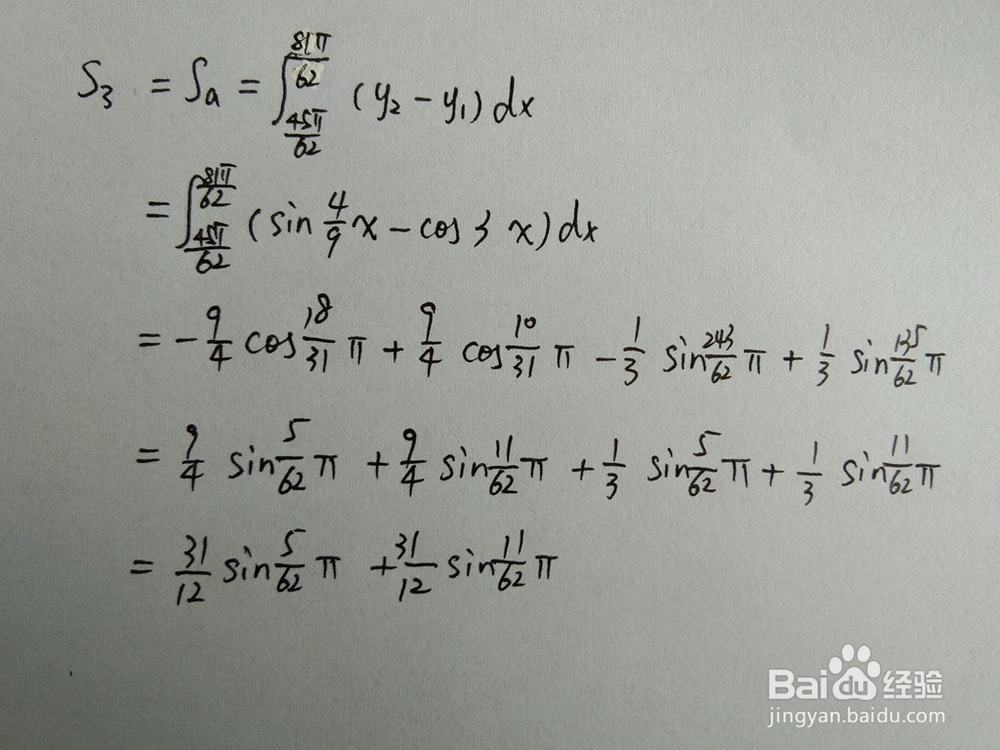 S₃ = Sₐ = ∫_{45π/62}^{81π/62} (y₂ - y₁) dx
= ∫_{45π/62}^{81π/62} (sin 4/9 x - cos 3 x) dx
= - 9/4 cos 18/31 π + 9/4 cos 10/31 π - 1/3 sin 243/62 π + 1/3 sin 135/62 π
= 9/4 sin 5/62 π + 9/4 sin 11/62 π + 1/3 sin 5/62 π + 1/3 sin 11/62 π
= 31/12 sin 5/62 π + 31/12 sin 11/62 π
Baidu 经验
jingyan.baidu.com